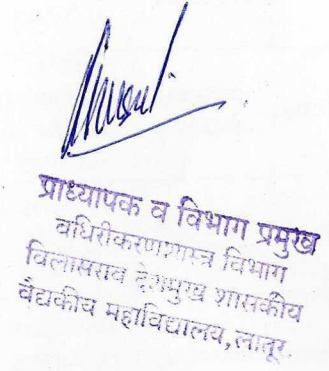 प्राध्यापक व विभाग प्रमुख
बधिरीकरणशास्त्र विभाग
विलासराव देशमुख शासकीय
वैद्यकीय महाविद्यालय, लातूर.